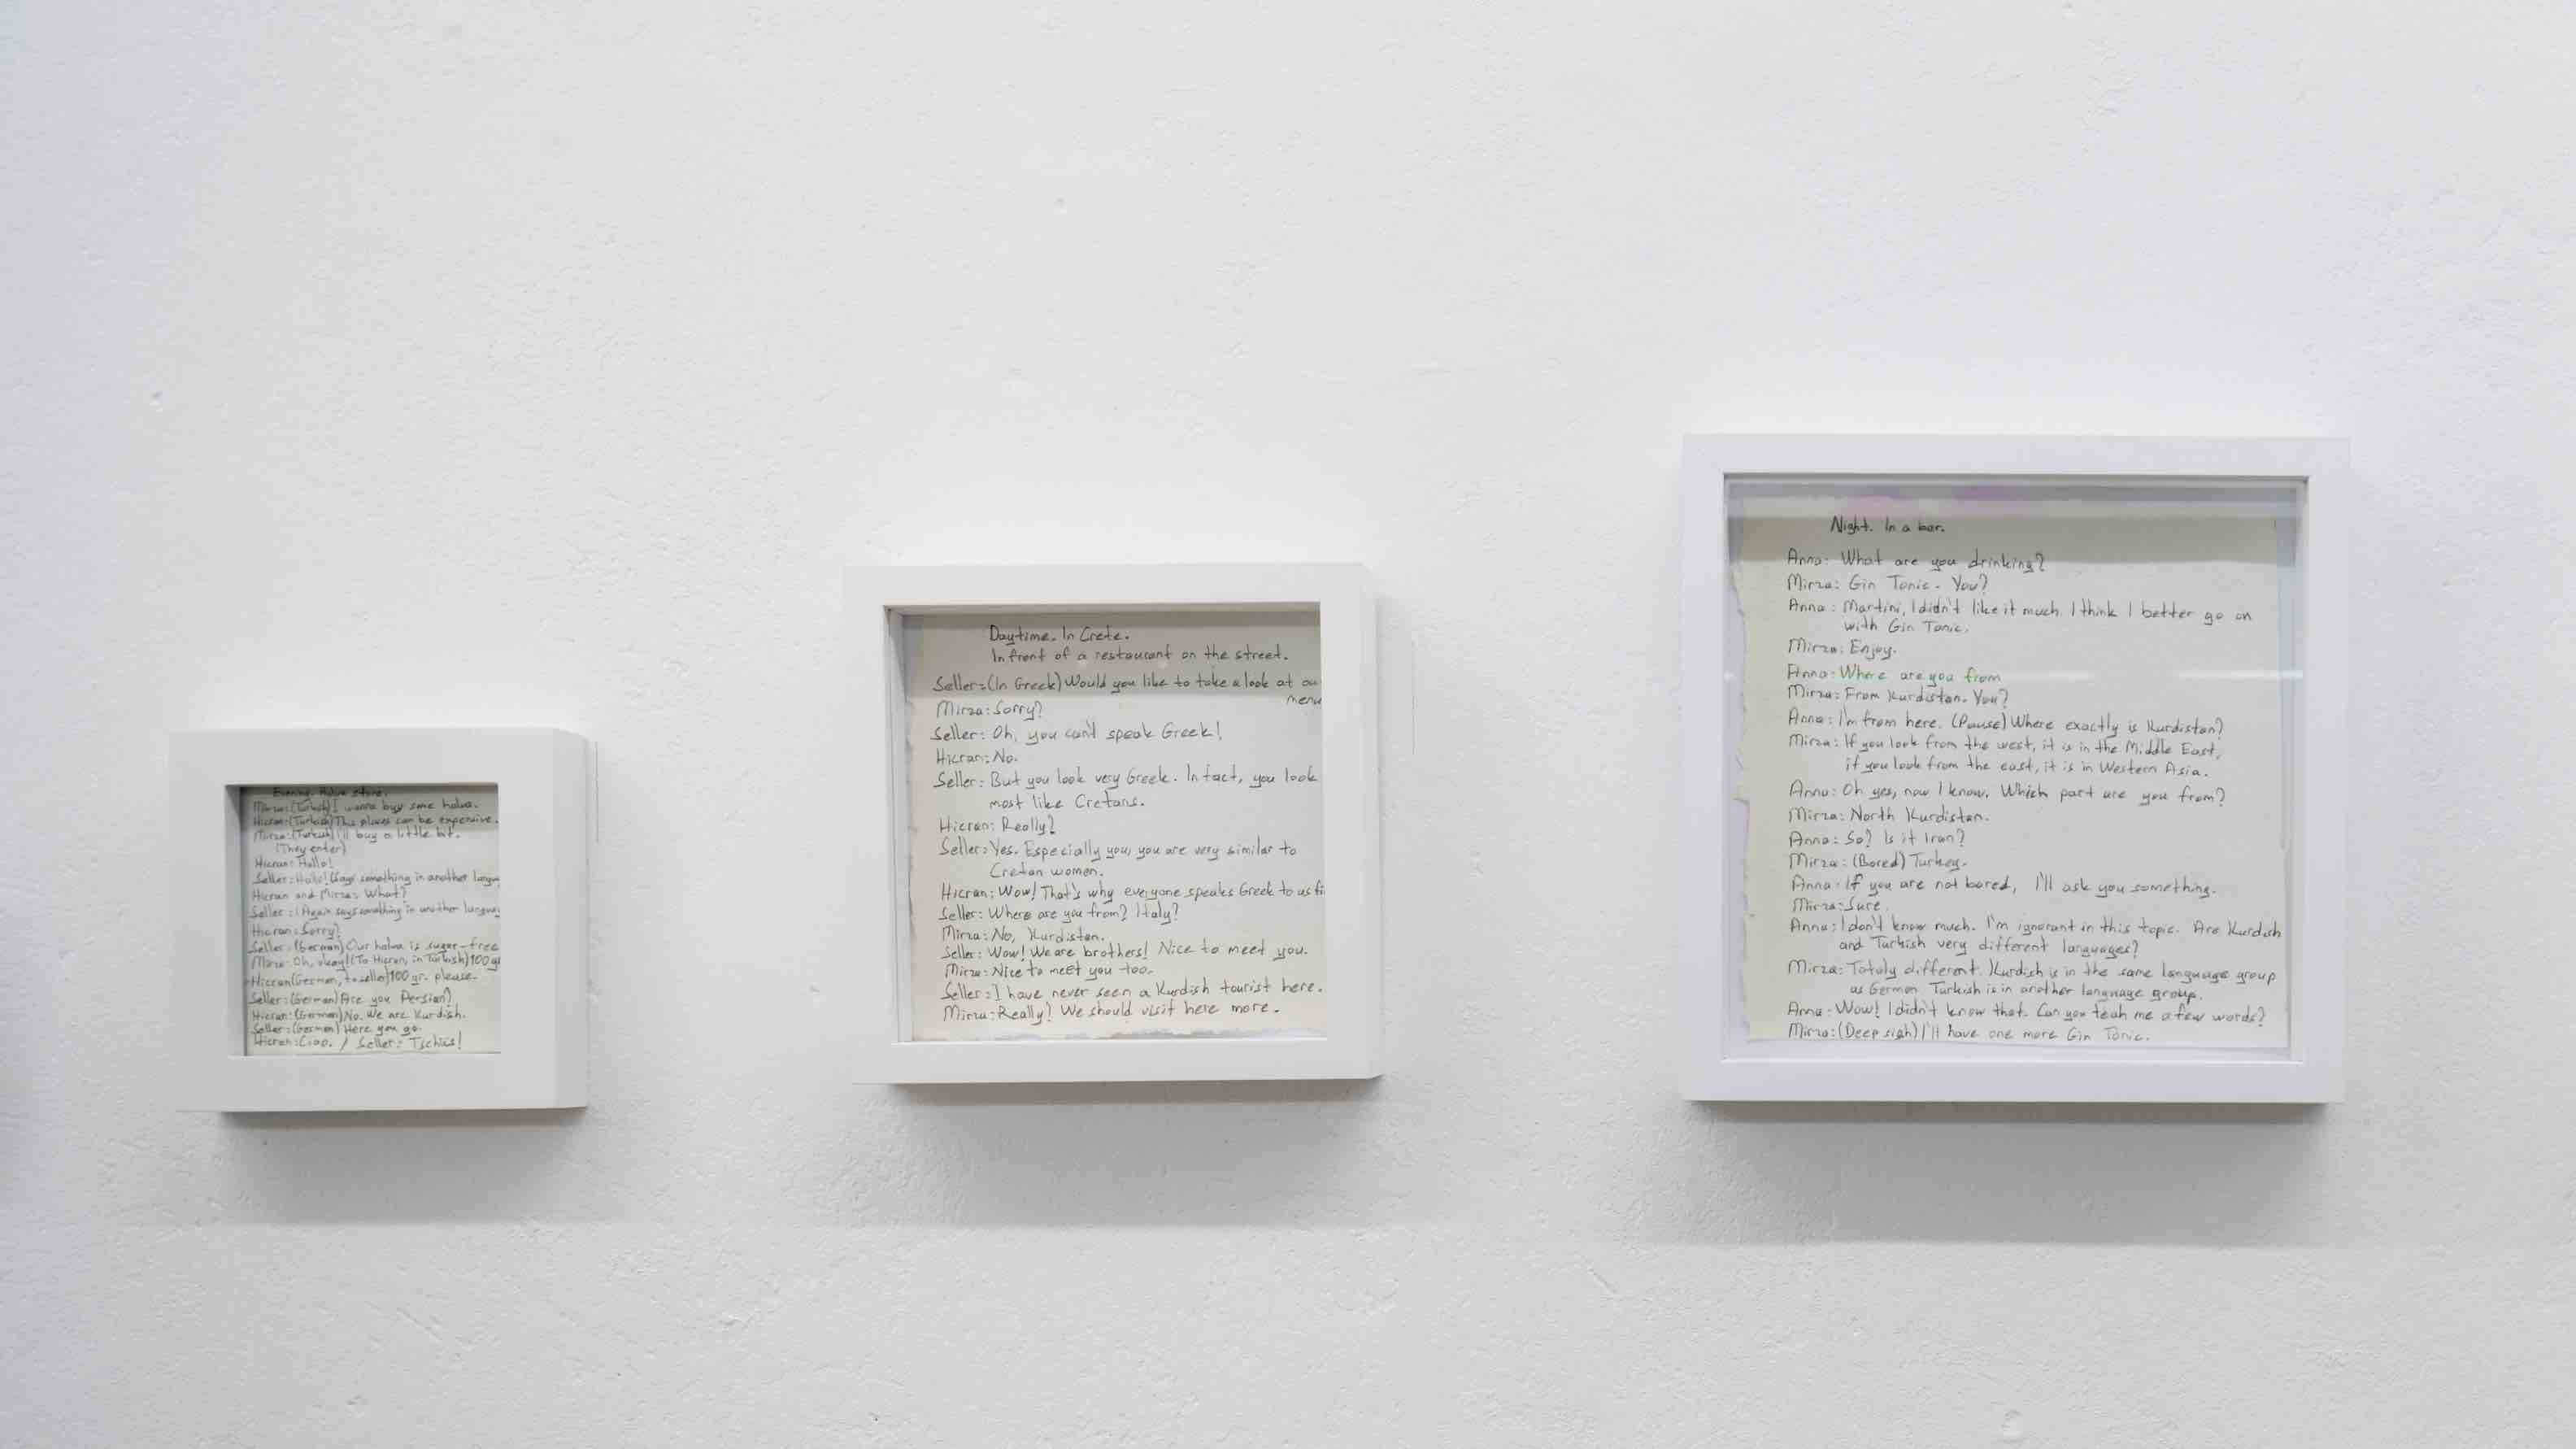 Evening. Halva store.
Mirza: (Turkish) I wanna buy some halva.
Hicran: (Turkish) This places can be expensive.
Mirza: (Turkish) I'll buy a little bit.
(They enter)
Hicran: Hallo!
Seller: Hallo! (Says something in another langu
Hicran and Mirza: What?
Seller: (Again says something in another langua
Hicran: Sorry?
Seller: (German) Our halva is sugar-free
Mirza: Oh, okay! (To Hicran, in Turkish) 100 g
Hicran (German, to seller) 100 gr. please.
Seller: (German) Are you Persian?
Hicran: (German) No. We are Kurdish.
Seller: (German) Here you go.
Hicran: Ciao. / Seller: Tschüs!
Daytime. In Crete.
In front of a restaurant on the street.
Seller: (In Greek) Would you like to take a look at ou
menu
Mirza: Sorry?
Seller: Oh, you can't speak Greek!
Hicran: No.
Seller: But you look very Greek. In fact, you look
most like Cretans.
Hicran: Really?
Seller: Yes. Especially you, you are very similar to
Cretan women.
Hicran: Wow! That's why everyone speaks Greek to us fi
Seller: Where are you from? Italy?
Mirza: No, Kurdistan.
Seller: Wow! We are brothers! Nice to meet you.
Mirza: Nice to meet you too.
Seller: I have never seen a Kurdish tourist here.
Mirza: Really? We should visit here more.
Night. In a bar.
Anna: What are you drinking?
Mirza: Gin Tonic. You?
Anna: Martini, I didn't like it much. I think I better go on
with Gin Tonic.
Mirza: Enjoy.
Anna: Where are you from
Mirza: From Kurdistan. You?
Anna: I'm from here. (Pause) Where exactly is Kurdistan?
Mirza: If you look from the west, it is in the Middle East,
if you look from the east, it is in Western Asia.
Anna: Oh yes, now I know. Which part are you from?
Mirza: North Kurdistan.
Anna: So? Is it Iran?
Mirza: (Bored) Turkey.
Anna: If you are not bored, I'll ask you something.
Mirza: Sure.
Anna: I don't know much. I'm ignorant in this topic. Are Kurdish
and Turkish very different languages?
Mirza: Totaly different. Kurdish is in the same language group
as German. Turkish is in another language group.
Anna: Wow! I didn't know that. Can you teah me a few words?
Mirza: (Deep sigh) I'll have one more Gin Tonic.